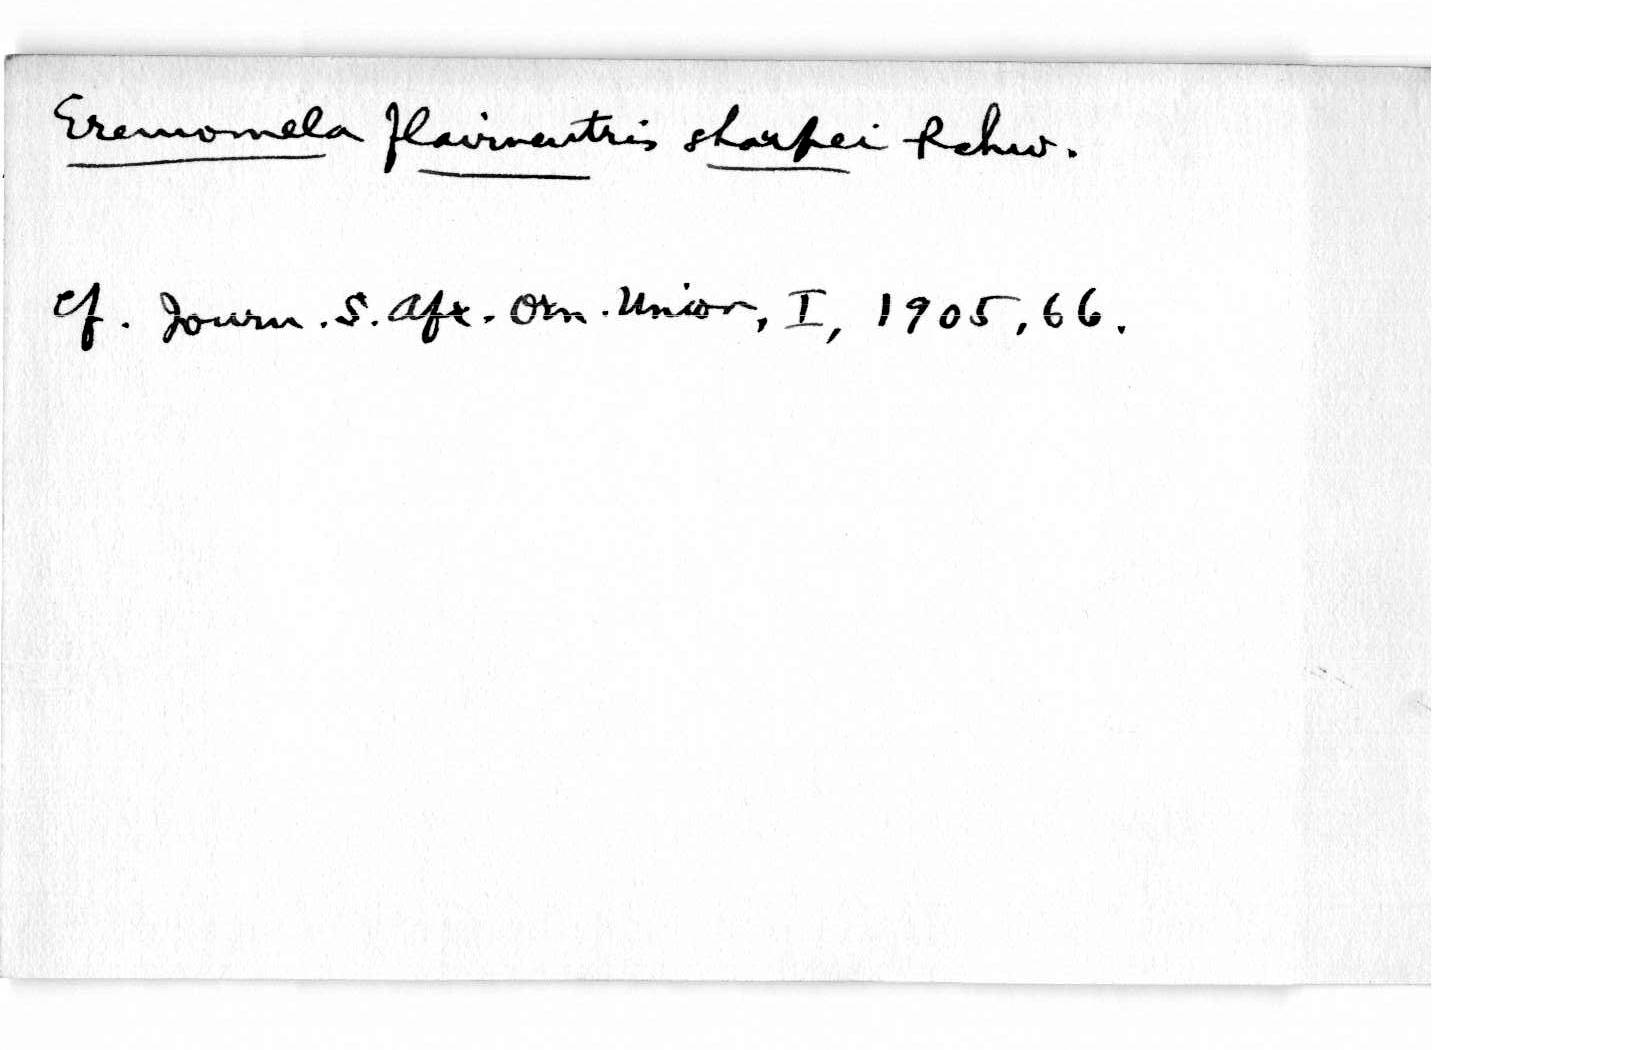 Eremomela flaviventris sharpei Rchw.
cf. Journ. S. Afr. Orn. Union, I, 1905, 66.